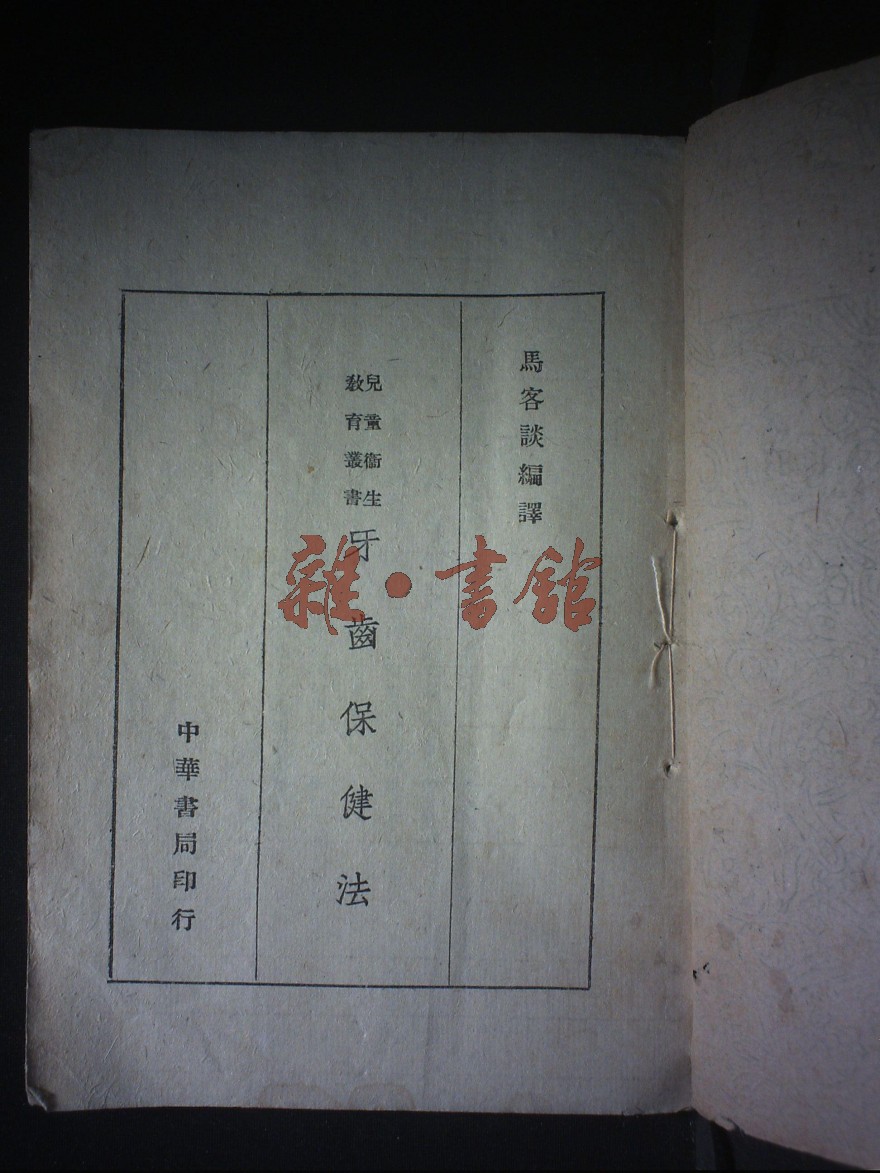 馬客談編譯
兒童衞生
教育叢書
牙齒保健法
中華書局印行
雜·書館